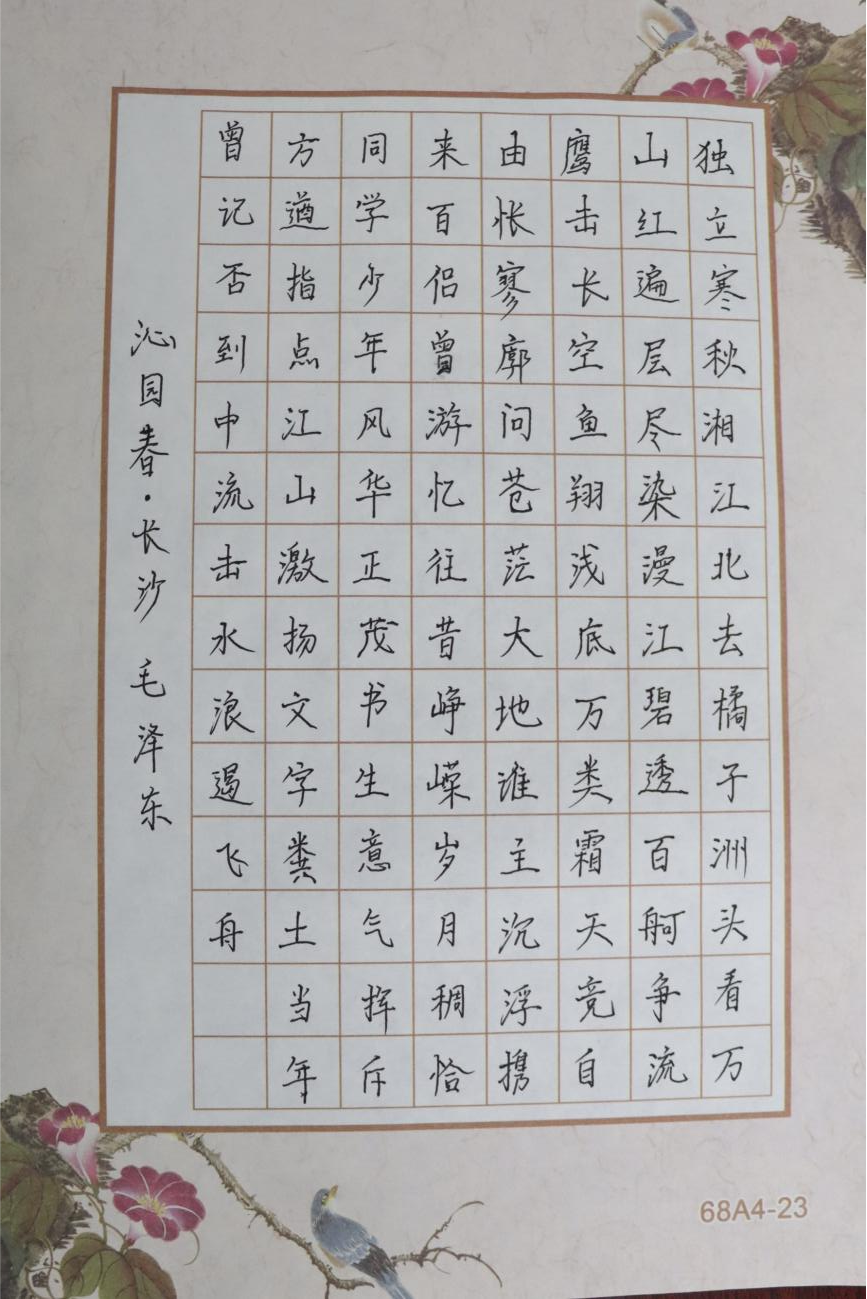 独立寒秋湘江北去橘子洲头看万
山红遍层尽染漫江碧透百舸争流
鹰击长空鱼翔浅底万类霜天竞自
由怅寥廓问苍茫大地谁主沉浮携
来百侣曾游忆往昔峥嵘岁月稠恰
同学少年风华正茂书生意气挥斥
方遒指点江山激扬文字粪土当年
曾记否到中流击水浪遏飞舟
沁园春·长沙 毛泽东
68A4-23